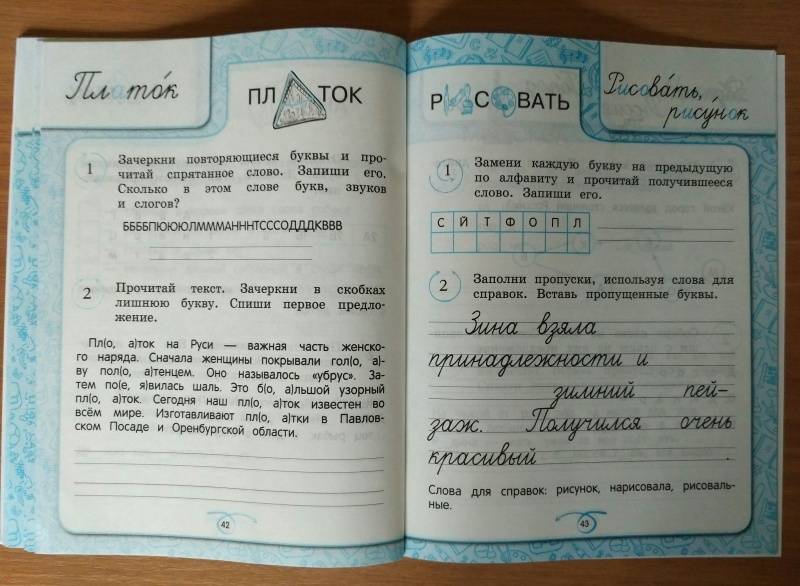 Платок
ПЛАТОК
1
Зачеркни повторяющиеся буквы и про-
читай спрятанное слово. Запиши его.
Сколько в этом слове букв, звуков
и слогов?
ББББПЮЮЮЛМММАНННТСССОДДДКВВВ
2
Прочитай текст. Зачеркни в скобках
лишнюю букву. Спиши первое предло-
жение.
Пл(о, а)ток на Руси — важная часть женско-
го наряда. Сначала женщины покрывали гол(о, а)-
ву пол(о, а)тенцем. Оно называлось «убрус». За-
тем по(е, я)вилась шаль. Это б(о, а)льшой узорный
пл(о, а)ток. Сегодня наш пл(о, а)ток известен во
всём мире. Изготавливают пл(о, а)тки в Павлов-
ском Посаде и Оренбургской области.
42
РИСОВАТЬ
Рисова́ть,
рису́нок
1
Замени каждую букву на предыдущую
по алфавиту и прочитай получившееся
слово. Запиши его.
С Й Т Ф О П Л
2
Заполни пропуски, используя слова для
справок. Вставь пропущенные буквы.
Зина взяла
принадлежности и
зимний пей-
заж. Получился очень
красивый .
Слова для справок: рисунок, нарисовала, рисоваль-
ные.
43